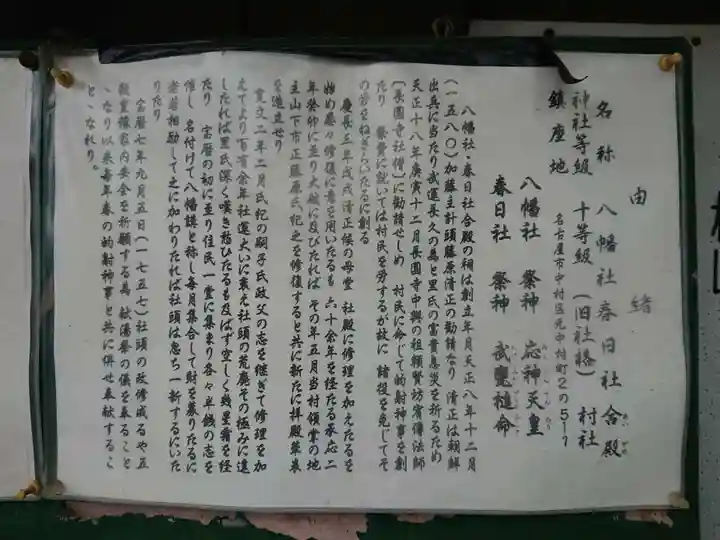 由緒
名称 八幡社春日社合殿
あいどの
神社等級 十等級(旧社格) 村社
鎮座地 名古屋市中村区元中村町2の51
八幡社 祭神 応神天皇
春日社 祭神 武甕槌命
八幡社・春日社合殿の祠は創立年月天正八年十二月
(一五八〇)加藤主計頭藤原清正の勧請なり 清正は朝鮮
出兵に当たり武運長久の為と里氏の富貴息災を祈るため
天正十八年庚寅十二月長圓寺中興の祖頼賢坊宥傳法師
(長圓寺社僧)に勧請せしめ 村民に命じて的射神事を創
たり 祭費に就いては村民を労するが故に 諸役を免じてそ
の労をねぎらいたるに創る
慶長三年戊戌清正候の母堂 社殿に修理を加えたるを
始め屡々修復に意を用いたるも 六十余年を経たる承応二
年癸巳に並り大破に及びたれば その年五月当村領掌の地
主山下市正藤原氏紀之を修復すると共に新たに拝殿華表
を造立せり
寛文二年二月氏紀の嗣子氏政父の志を継ぎて修理を加
えてより百有余年社運大いに衰え社頭の荒廃その極みに達
したれば里氏深く嘆き愁ひたるも及ばず空しく幾星霜を経
たり 宝暦の初に並り住民一堂に集まり各々半銭の志を
催し 名付けて八幡講と称し毎月集合して財を募りたるに
老若相励して之に加わりたれば社頭は忽ち一新するにいた
りたり
宝暦七年九月五日(一七五七)社頭の改修成るや五
穀豊穣家内安全を祈願する為 献湯祭の儀を奉ること
ゝなり以来毎年春の的射神事と共に併せ奉献するこ
とゝなれり。